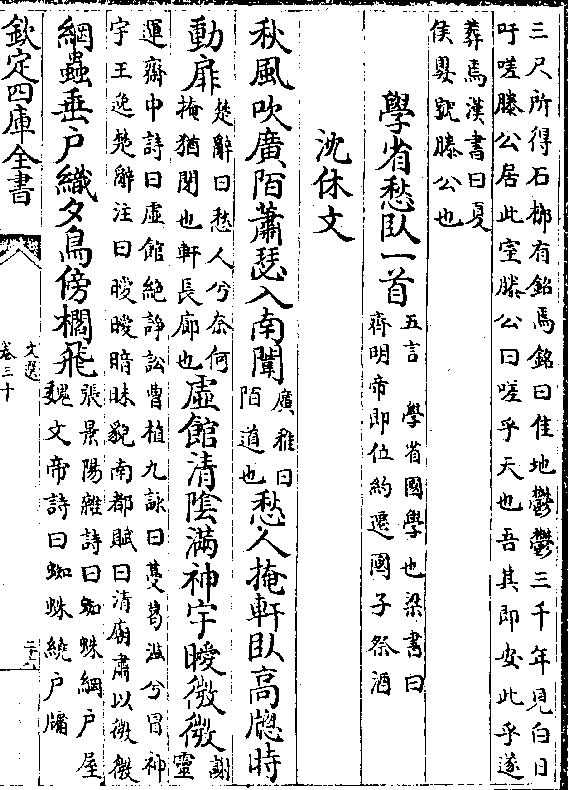 三尺所得石槨有銘焉銘曰佳地鬱鬱三千年見白日
吁嗟滕公居此室滕公曰嗟乎天也吾其即安此乎遂
葬焉漢書曰夏
侯嬰號滕公也
學省愁臥一首
五言　學省國學也梁書曰
齊明帝即位約遷國子祭酒
沈休文
秋風吹廣陌蕭瑟入南闈
廣雅曰
陌道也
愁人掩軒臥高牕時
動扉
楚辭曰愁人兮奈何
掩猶閉也軒長廊也
虛館清陰滿神宇曖微微
謝
靈
運齋中詩曰虛館絶諍訟曹植九詠曰蔓葛滋兮冒神
宇王逸楚辭注曰曖曖暗昧貌南都賦曰清廟肅以微微
網蟲垂户織夕鳥傍櫩飛
張景陽雜詩曰蜘蛛網户屋
魏文帝詩曰蜘蛛繞户牖
欽定四庫全書
文選
卷三十